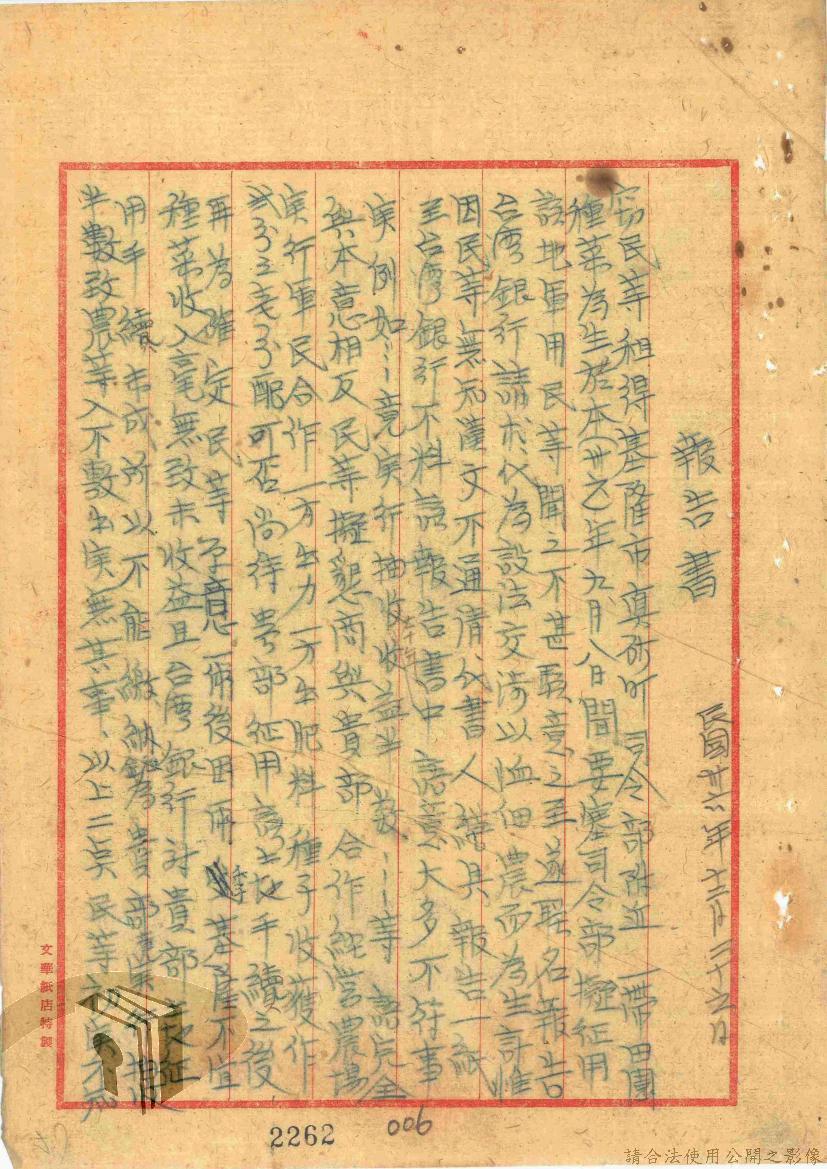 報告書
民國卅六年十二月二十六日
竊民等租得基隆市真砂町司令部附近一帶田園
種菜為生於本(卅六)年九月八日聞要塞司令部擬征用
該地軍用民等聞之不甚厭意之至遂聯名報告
台湾銀行請求代為設法交涉以恤佃農而為生計惟
因民等無知漢文不通倩代書人繕具報告一紙
至台湾銀行不料該報告書中語意大多不符事
実例如……竟実行抽收收益半数……等語完全
與本意相反民等擬懇商與貴部合作経営農場
実行軍民合作一方出力一方出肥料種子收獲作
分配可否尚待貴部征用該土地手續之後
再為確定民等
種菜收入毫無致未收益且台湾銀行討貴部征
用手續未成所以不能繳納 貴部実行抽收
半數致農等入不敷出実無其事、以上二点民等
文華紙店特製
2262
006
請合法使用公開之影像